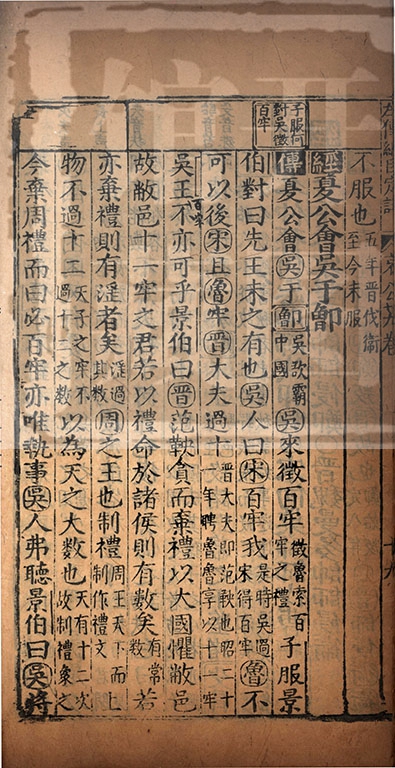 不服也五年晉伐衞至今未服
經夏公會吳于鄫
子服何對吳徵百牢
傳夏公會吳于鄫吳欲霸中國吳來徵百牢徵魯索百牢之禮子服景
伯對曰先王未之有也吳人曰宋百牢我是時吳過宋得百牢魯不
可以後宋且魯牢晉大夫過十晉大夫即范鞅也昭二十一年聘魯魯享以十一牢
吳王百牢不亦可乎景伯曰晉范鞅貪而棄禮以大國懼敝邑
故敝邑十一牢之君若以禮命於諸侯則有數矣有常數若
亦棄禮則有淫者矣淫過其數周之王也制禮周王天下而上制作禮文
物不過十二天子之牢不過十二之數以為天之大數也天有十二次故制禮象之
今棄周禮而曰必百牢亦唯執事吳人弗聽景伯曰吳將